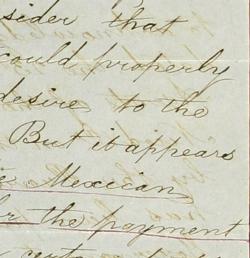 sider that
could properly
desire to the
But it appears
Mexican
the payment